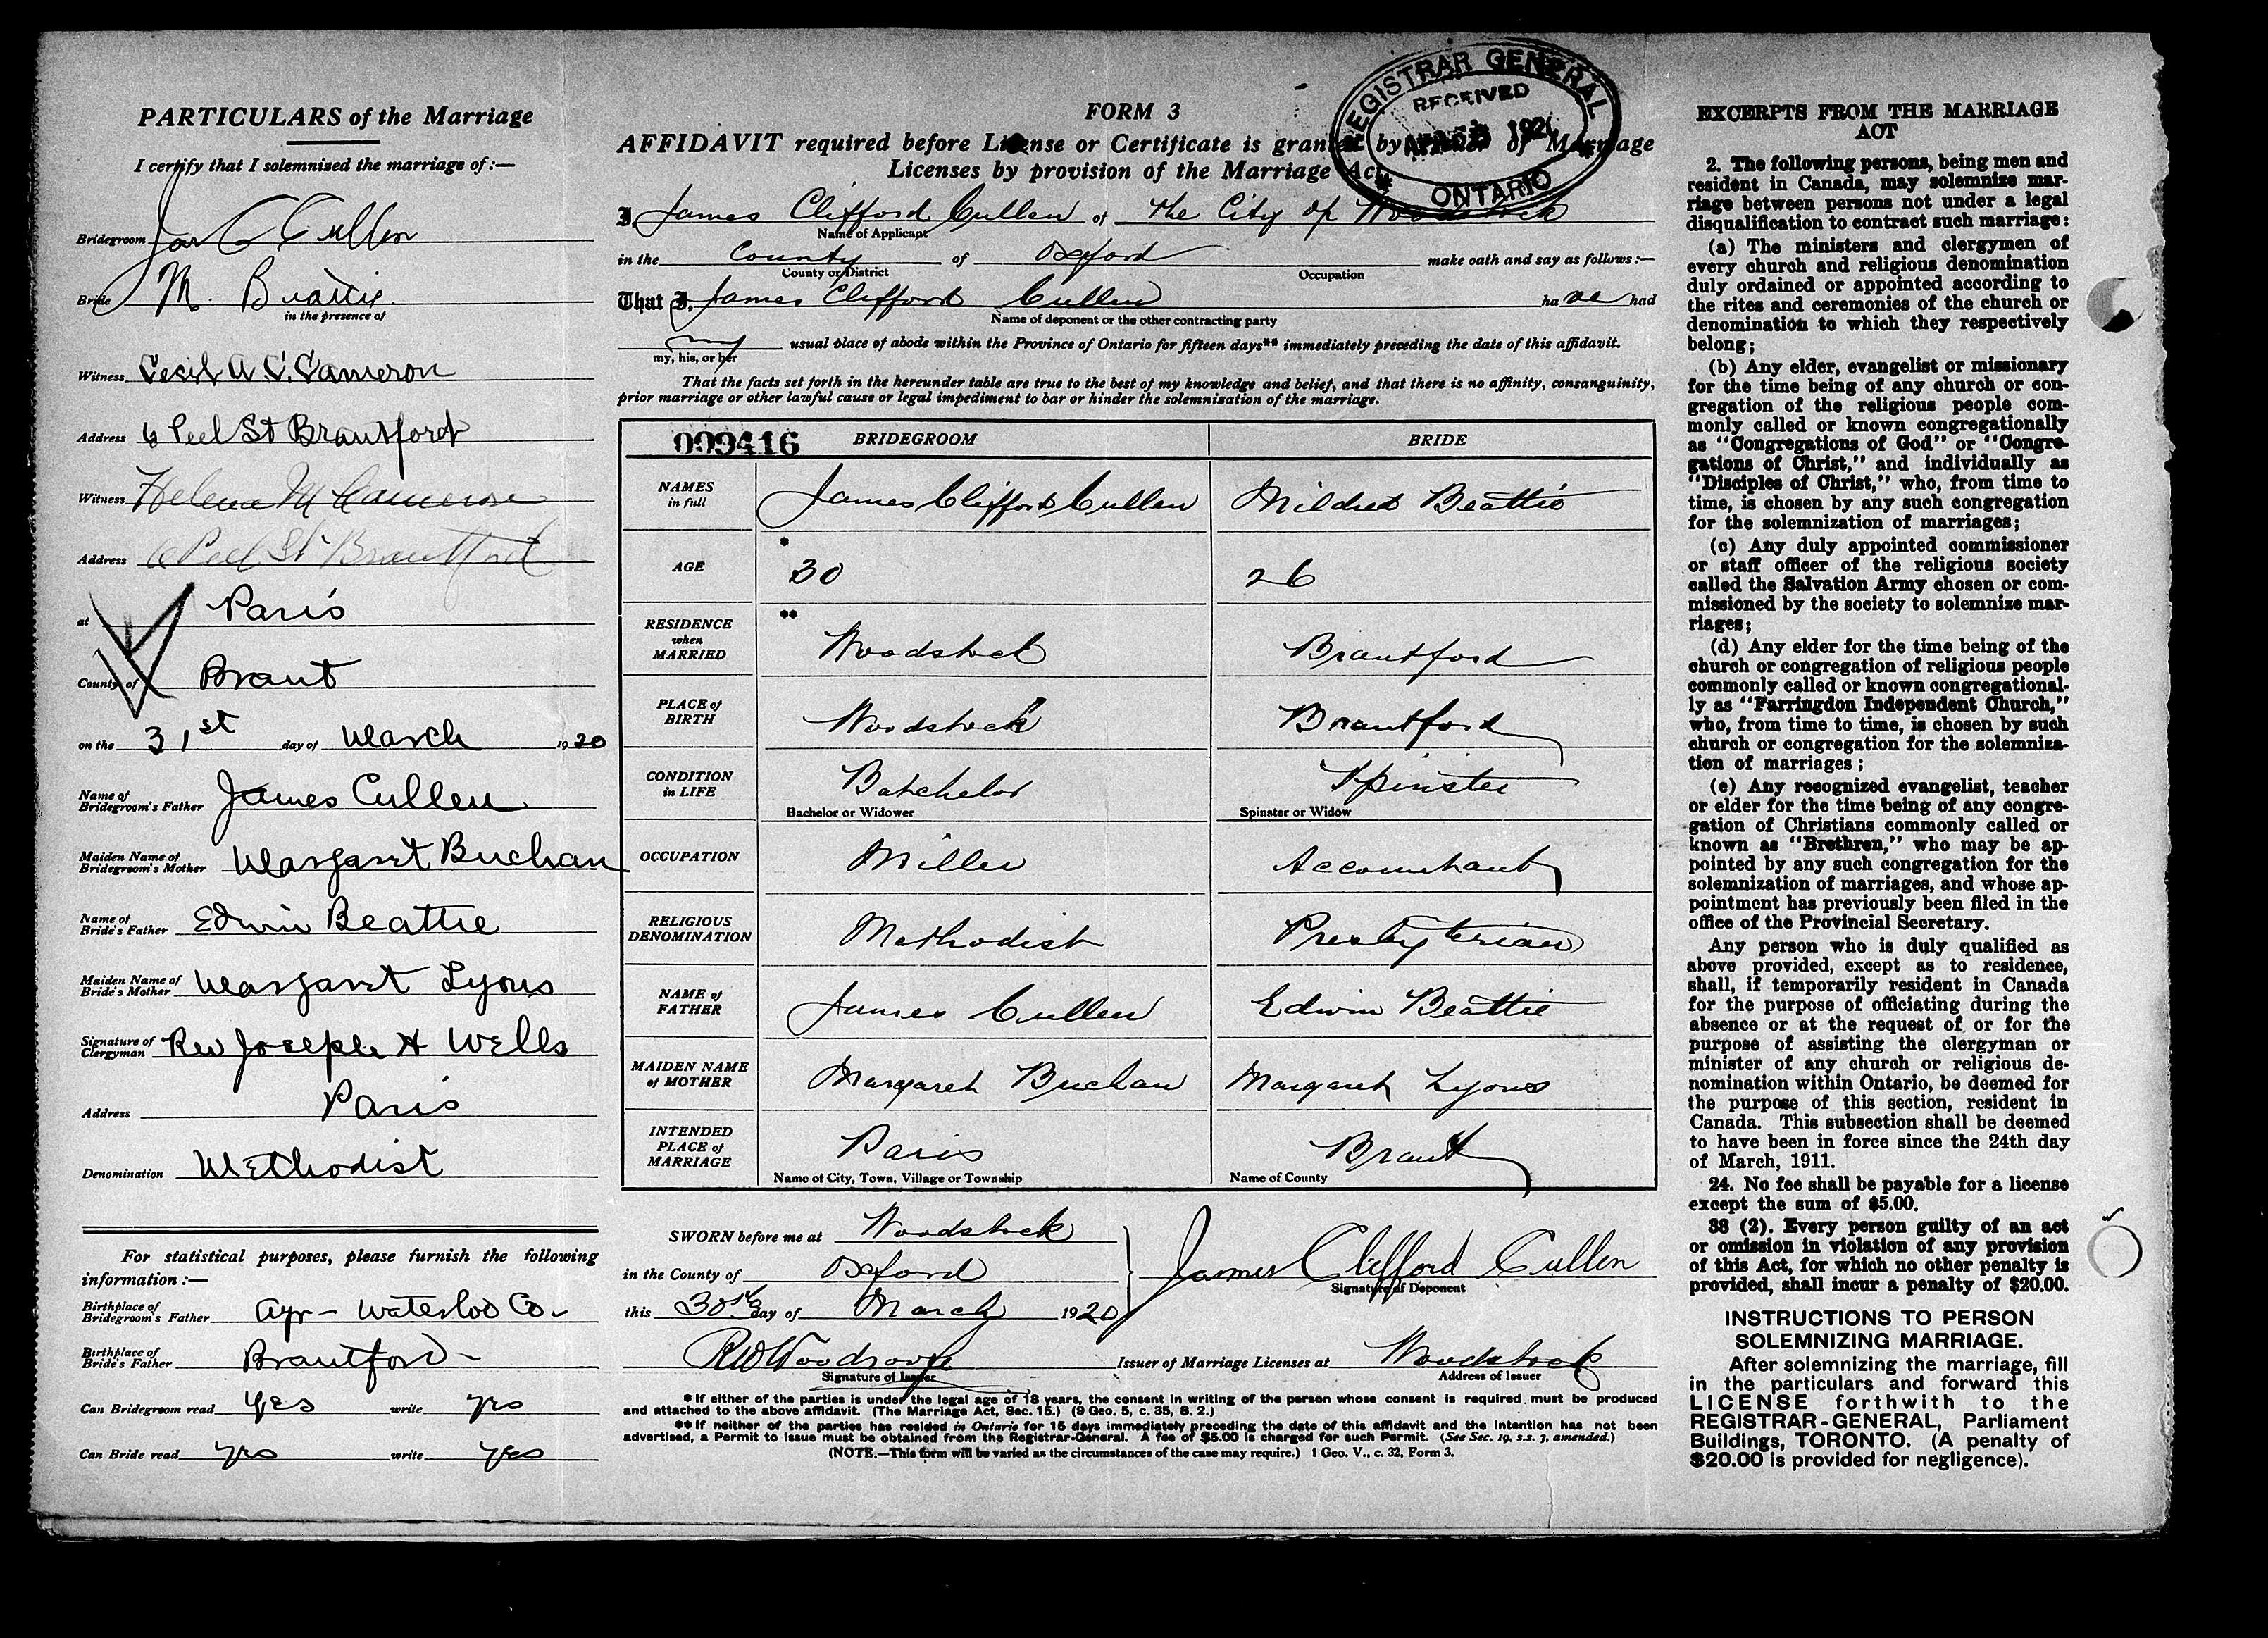 PARTICULARS of the Marriage
I certify that I solemnised the marriage of:—
Bridegroom Jas C Cullen
Bride M. Beattie
in the presence of
Witness Cecil A C. Cameron
Address 6 Peel St Brantford
Witness Helena M Cameron
Address 6 Peel St Brantford
at Paris
County of Brant
on the 31st day of March 1920
Name of Bridegroom's Father James Cullen
Maiden Name of Bridegroom's Mother Margaret Buchan
Name of Bride's Father Edwin Beattie
Maiden Name of Bride's Mother Margaret Lyons
Signature of Clergyman Rev Joseph H Wells
Address Paris
Denomination Methodist
For statistical purposes, please furnish the following
information :—
Birthplace of Bridegroom's Father Ayr - Waterloo Co-
Birthplace of Bride's Father Brantford -
Can Bridegroom read yes write yes
Can Bride read yes write yes
FORM 3
AFFIDAVIT required before License or Certificate is granted by Issuer of Marriage
Licenses by provision of the Marriage Act
REGISTRAR GENERAL
RECEIVED
ONTARIO
I, James Clifford Cullen of the City of Woodstock
Name of Applicant
in the County of Oxford make oath and say as follows:—
County or District Occupation
That I, James Clifford Cullen ha ve had
Name of deponent or the other contracting party
my usual place of abode within the Province of Ontario for fifteen days** immediately preceding the date of this affidavit.
my, his, or her
That the facts set forth in the hereunder table are true to the best of my knowledge and belief, and that there is no affinity, consanguinity,
prior marriage or other lawful cause or legal impediment to bar or hinder the solemnization of the marriage.
099416 BRIDEGROOM BRIDE
NAMES in full James Clifford Cullen Mildred Beattie
AGE * 30 26
RESIDENCE when MARRIED ** Woodstock Brantford
PLACE of BIRTH Woodstock Brantford
CONDITION in LIFE Batchelor Spinster
Bachelor or Widower Spinster or Widow
OCCUPATION Miller Accountant
RELIGIOUS DENOMINATION Methodist Presbyterian
NAME of FATHER James Cullen Edwin Beattie
MAIDEN NAME of MOTHER Margaret Buchan Margaret Lyons
INTENDED PLACE of MARRIAGE Paris Brant
Name of City, Town, Village or Township Name of County
SWORN before me at Woodstock
in the County of Oxford James Clifford Cullen
Signature of Deponent
this 30th day of March 1920
R W Woodroofe Issuer of Marriage Licenses at Woodstock
Signature of Issuer Address of Issuer
* If either of the parties is under the legal age of 18 years, the consent in writing of the person whose consent is required must be produced
and attached to the above affidavit. (The Marriage Act, Sec. 15.) (9 Geo. 5, c. 35, S. 2.)
** If neither of the parties has resided in Ontario for 15 days immediately preceding the date of this affidavit and the intention has not been
advertised, a Permit to Issue must be obtained from the Registrar-General. A fee of $5.00 is charged for such Permit. (See Sec. 19, s.s. 3, amended.)
(NOTE.—This form will be varied as the circumstances of the case may require.) 1 Geo. V., c. 32, Form 3.
EXCERPTS FROM THE MARRIAGE
ACT
2. The following persons, being men and
resident in Canada, may solemnize mar-
riage between persons not under a legal
disqualification to contract such marriage:
(a) The ministers and clergymen of
every church and religious denomination
duly ordained or appointed according to
the rites and ceremonies of the church or
denomination to which they respectively
belong;
(b) Any elder, evangelist or missionary
for the time being of any church or con-
gregation of the religious people com-
monly called or known congregationally
as "Congregations of God" or "Congre-
gations of Christ," and individually as
"Disciples of Christ," who, from time to
time, is chosen by any such congregation
for the solemnization of marriages;
(c) Any duly appointed commissioner
or staff officer of the religious society
called the Salvation Army chosen or com-
missioned by the society to solemnize mar-
riages;
(d) Any elder for the time being of the
church or congregation of religious people
commonly called or known congregational-
ly as "Farringdon Independent Church,"
who, from time to time, is chosen by such
church or congregation for the solemniza-
tion of marriages;
(e) Any recognized evangelist, teacher
or elder for the time being of any congre-
gation of Christians commonly called or
known as "Brethren," who may be ap-
pointed by any such congregation for the
solemnization of marriages, and whose ap-
pointment has previously been filed in the
office of the Provincial Secretary.
Any person who is duly qualified as
above provided, except as to residence,
shall, if temporarily resident in Canada
for the purpose of officiating during the
absence or at the request of or for the
purpose of assisting the clergyman or
minister of any church or religious de-
nomination within Ontario, be deemed for
the purpose of this section, resident in
Canada. This subsection shall be deemed
to have been in force since the 24th day
of March, 1911.
24. No fee shall be payable for a license
except the sum of $5.00.
38 (2). Every person guilty of an act
or omission in violation of any provision
of this Act, for which no other penalty is
provided, shall incur a penalty of $20.00.
INSTRUCTIONS TO PERSON
SOLEMNIZING MARRIAGE.
After solemnizing the marriage, fill
in the particulars and forward this
LICENSE forthwith to the
REGISTRAR-GENERAL, Parliament
Buildings, TORONTO. (A penalty of
$20.00 is provided for negligence).